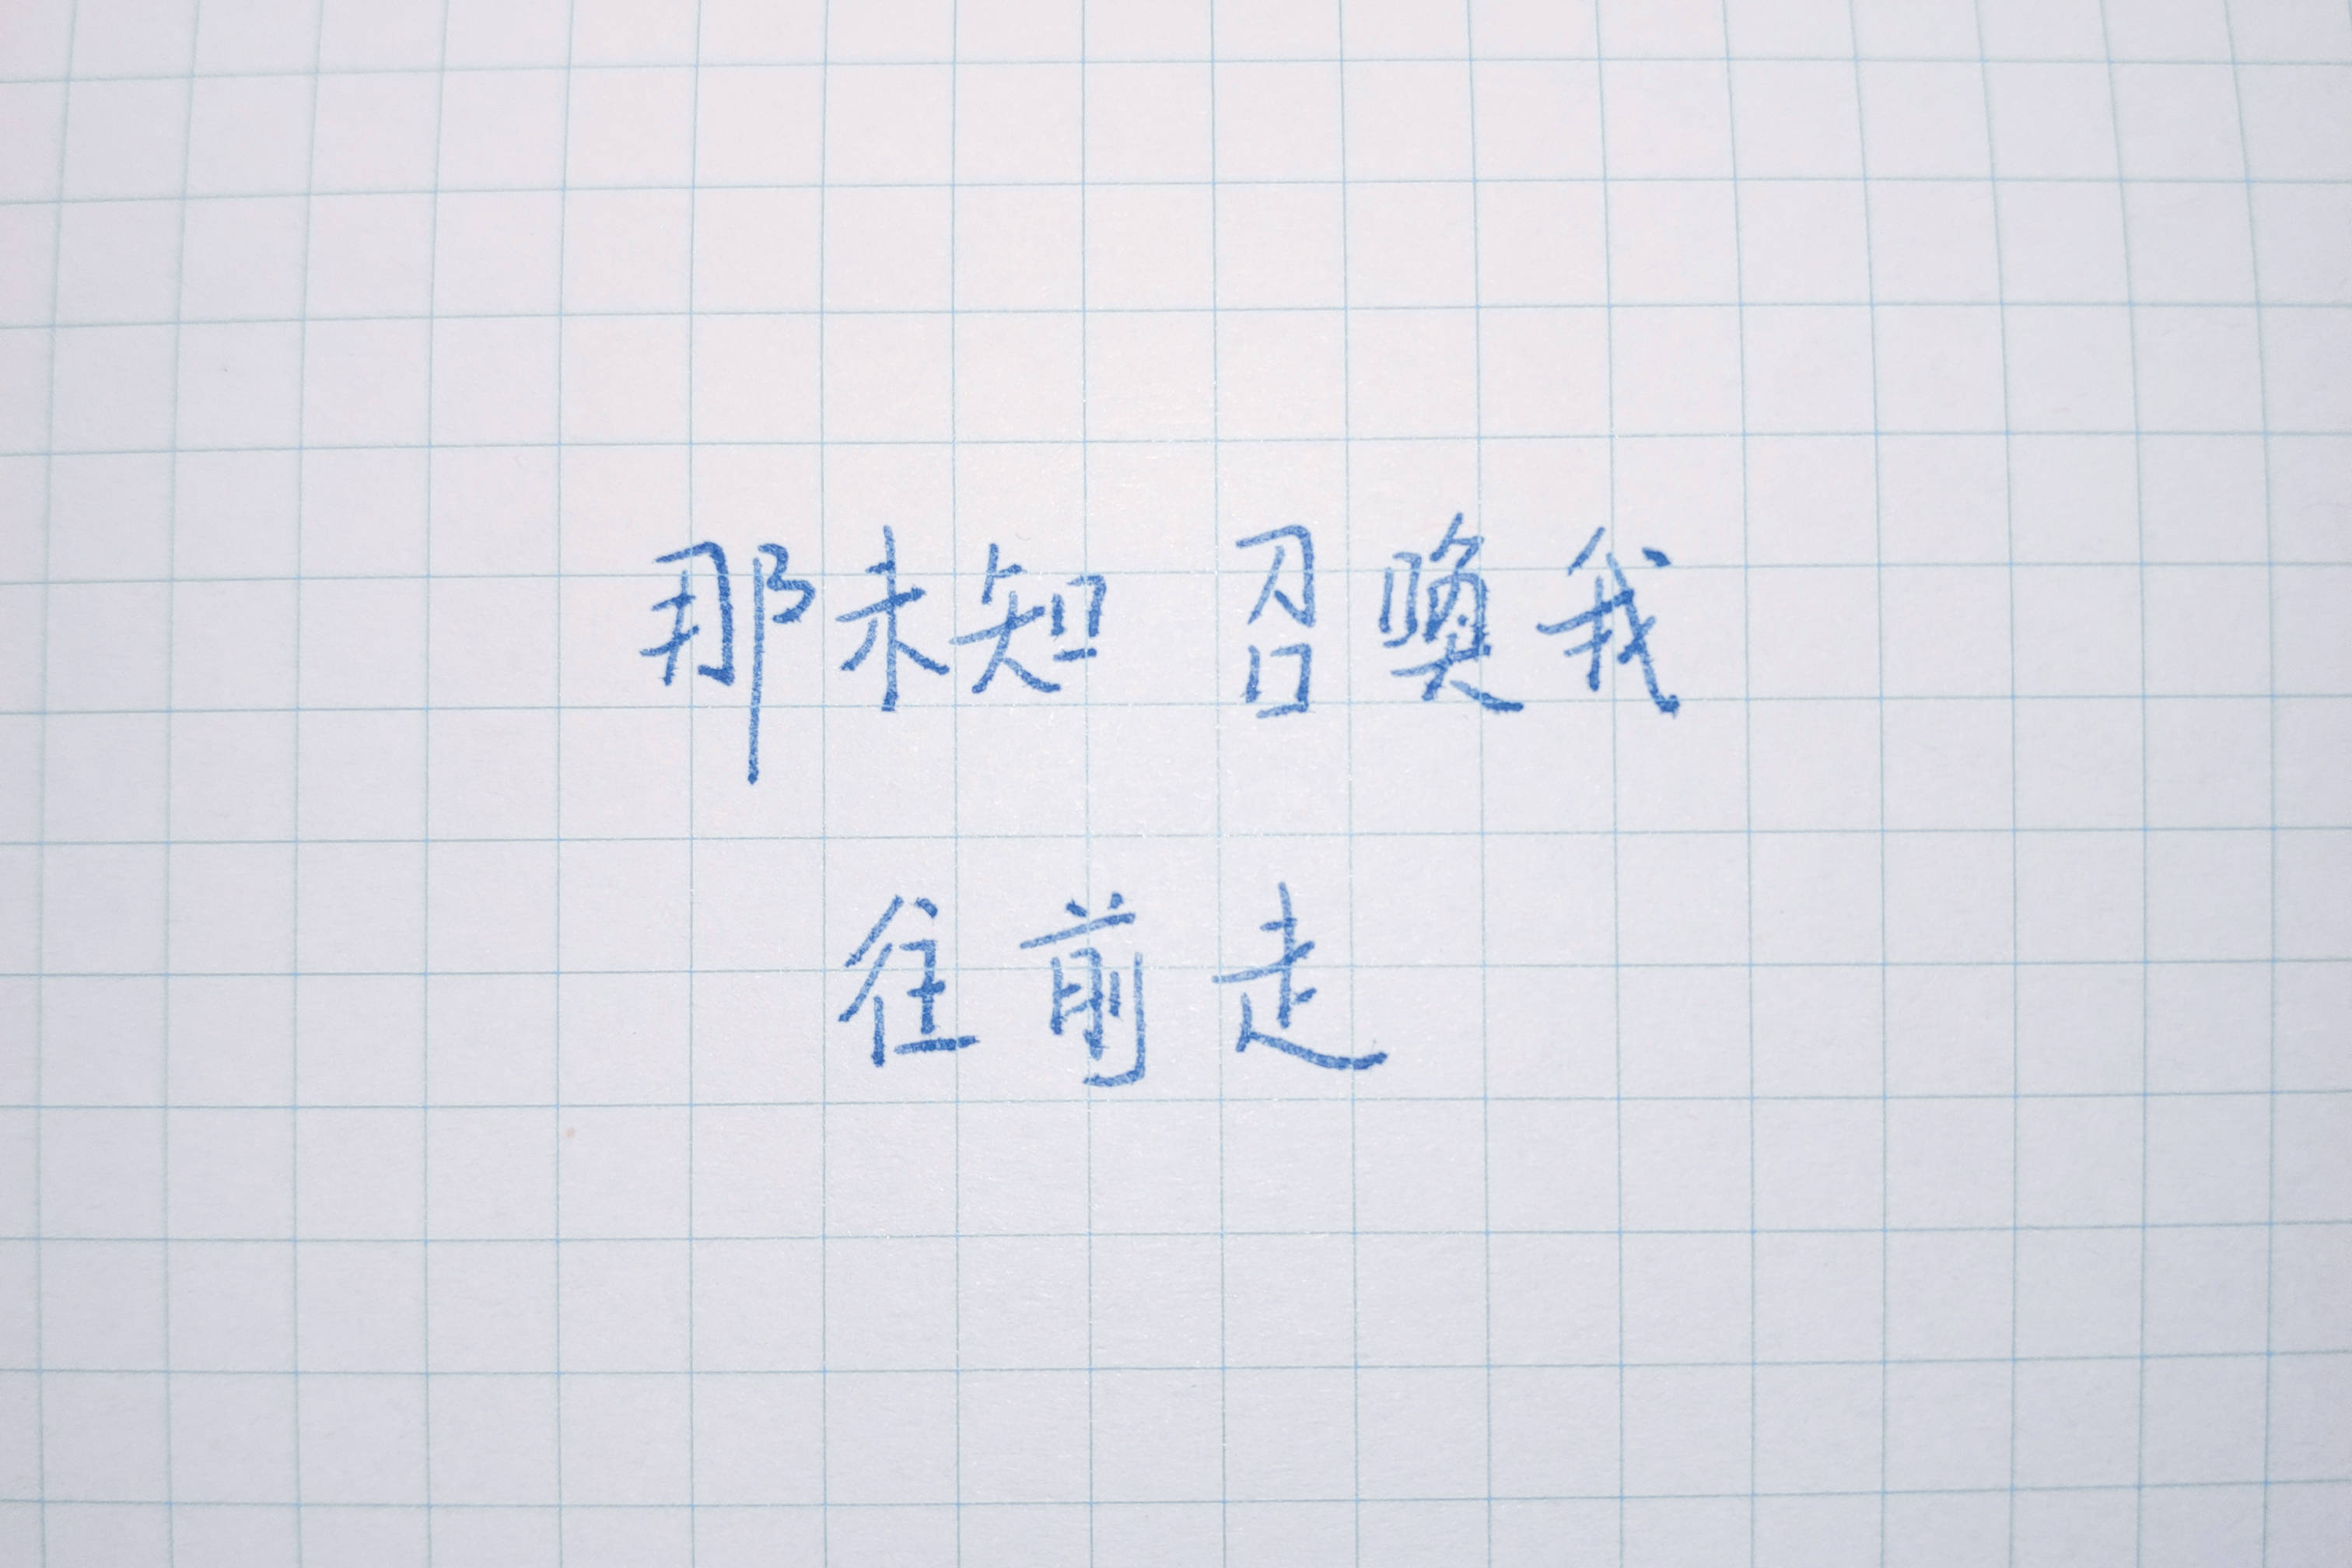 那未知 召喚我
往前走